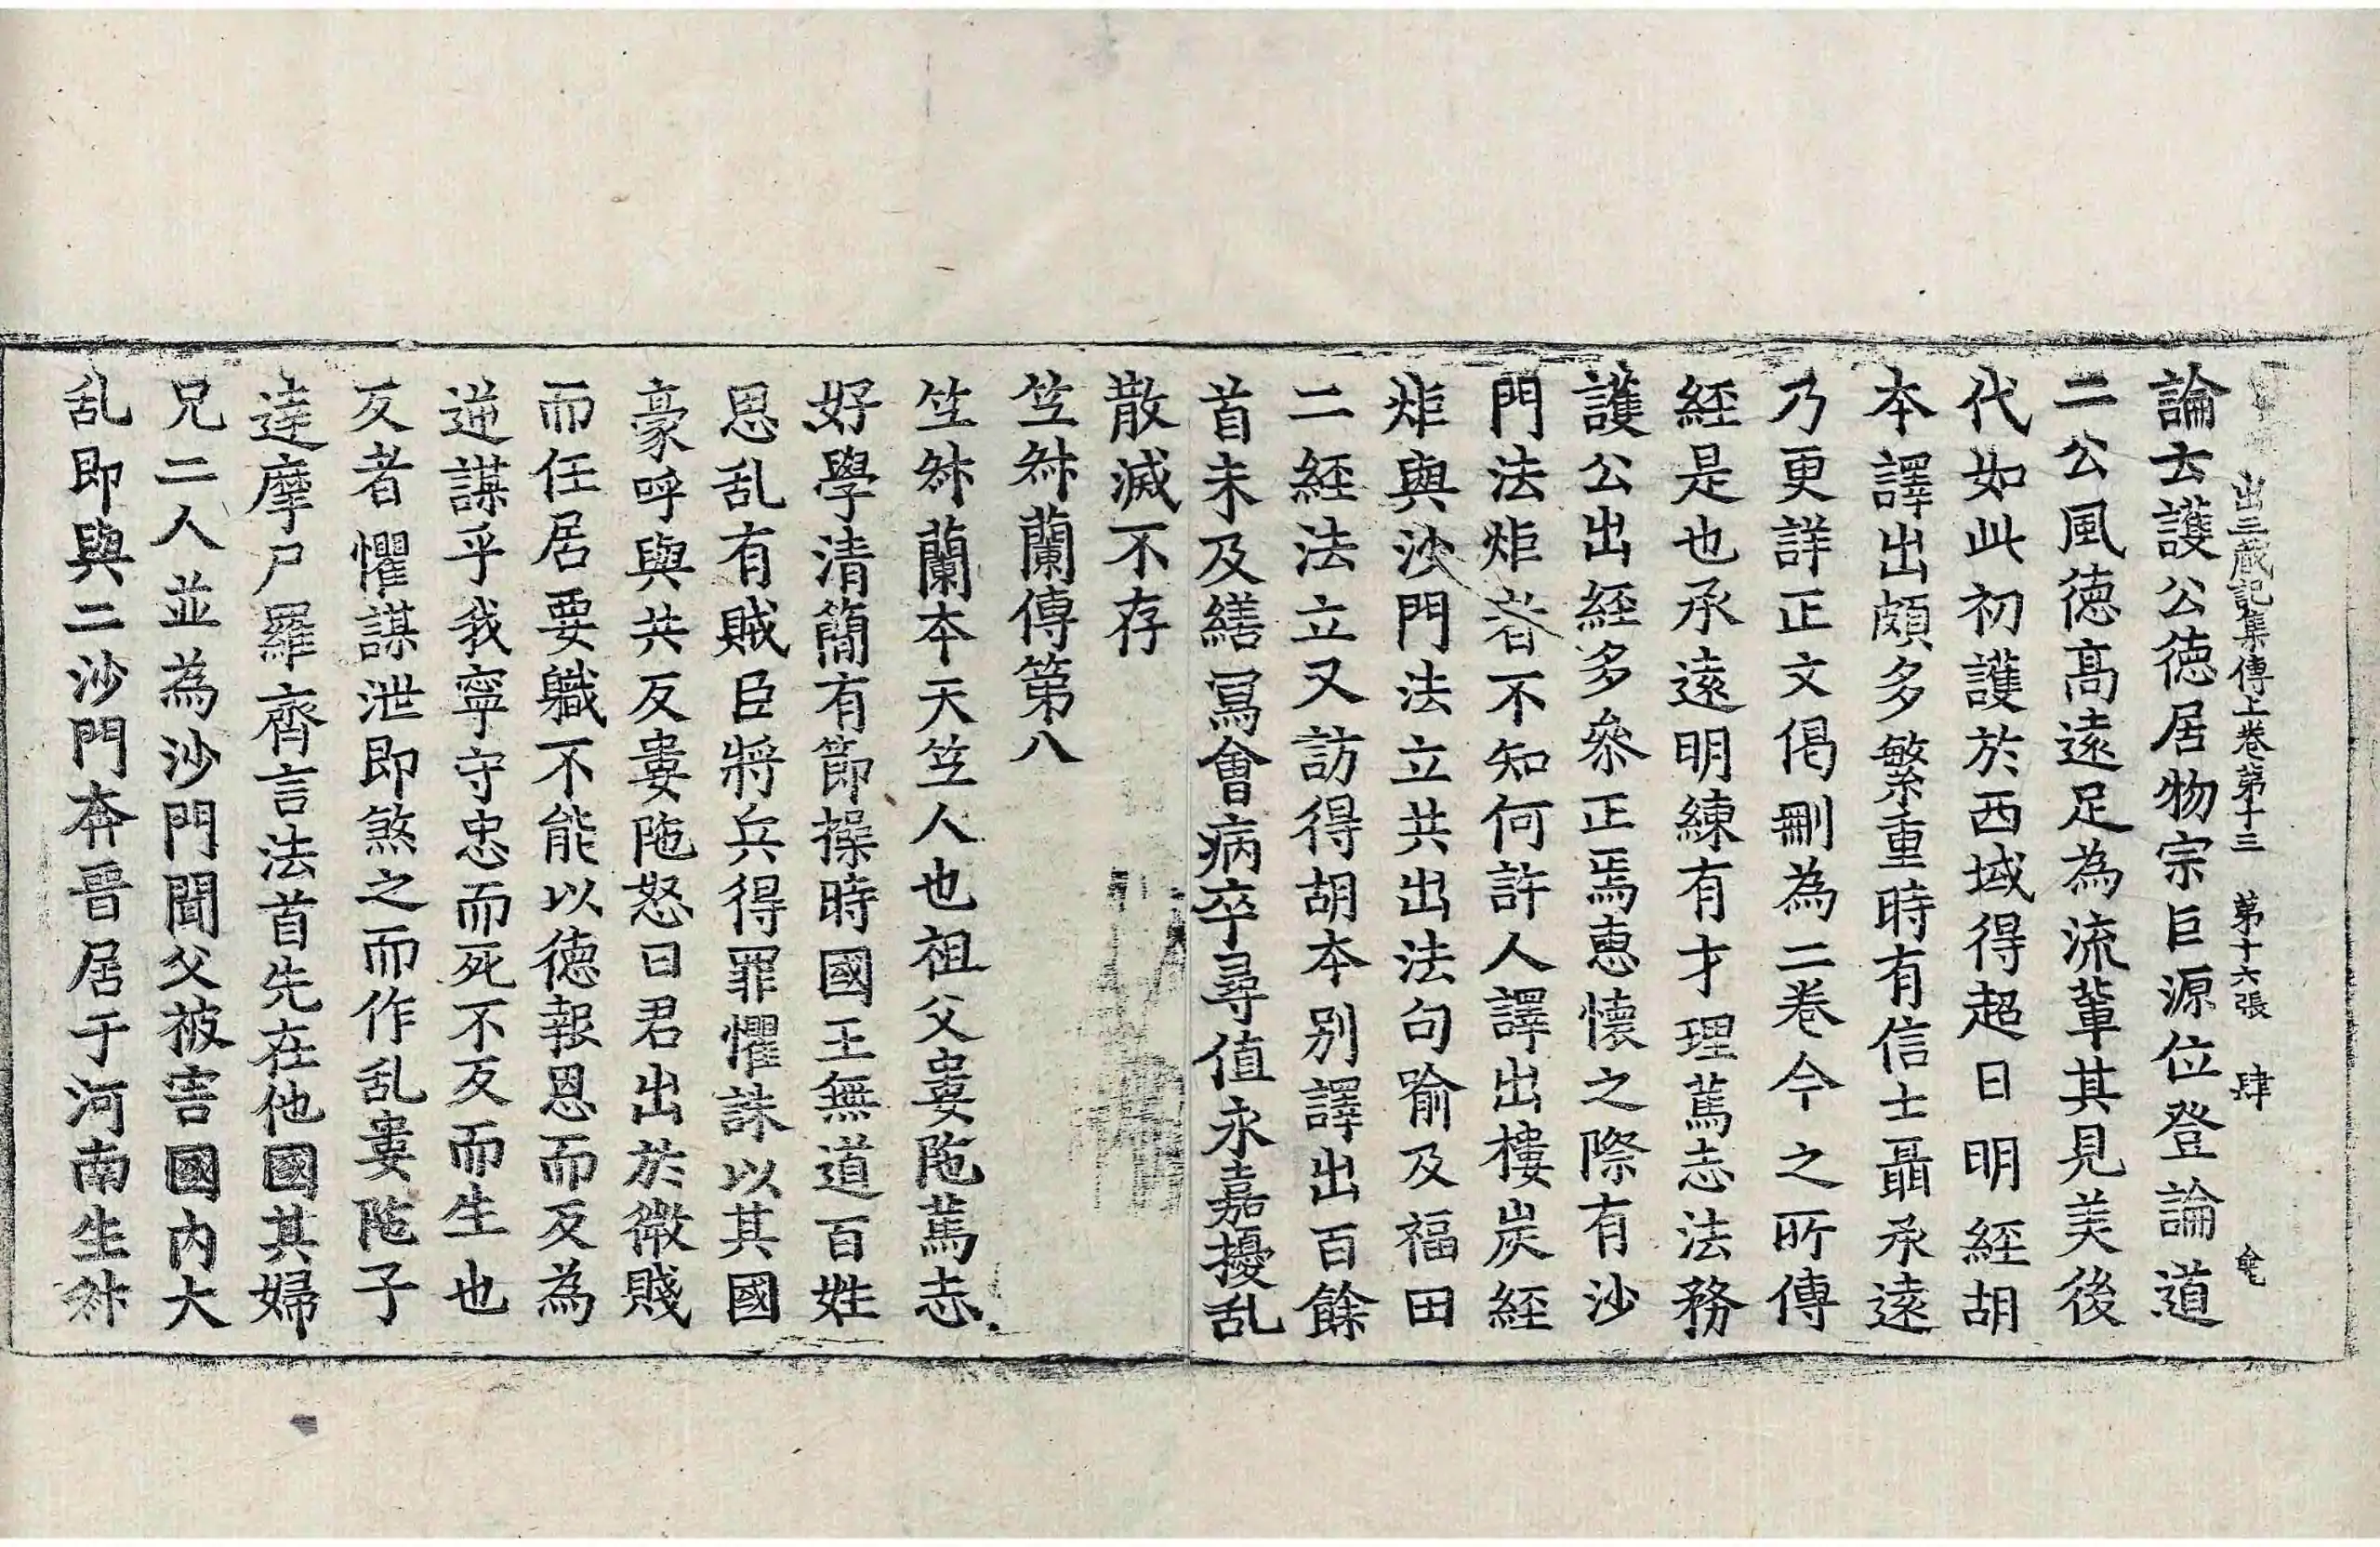 出三蔵記集傳上卷第十三 第十六張 肆
論云護公徳居物宗巨源位登論道
二公風徳髙遠足為流軰其見美後
代如此初護於西域得超日明經胡
本譯出頗多繁重時有信士聶承遠
乃更詳正文偈刪為二卷今之所傳
經是也承遠明練有才理萬志法務
護公出經多叅正焉恵懷之際有沙
門法炬者不知何許人譯出樓炭經
炬與沙門法立共出法句喻及福田
二經法立又訪得胡本别譯出百餘
首未及繕冩會病卒尋值永嘉擾乱
散滅不存
笁叔蘭傳第八
笁叔蘭本天笁人也祖父婁陁萬志
好學清簡有節操時國王無道百姓
思乱有賊臣將兵得罪懼誅以其國
豪呼與共反婁陁怒曰君出於微賤
而任居要軄不能以徳報恩而反為
逆謀乎我寧守忠而死不反而生也
反者懼謀泄即煞之而作乱婁陁子
達摩尸羅齊言法首先在他國其婦
兄二人並為沙門聞父被害國内大
乱即與二沙門奔晉居于河南生叔